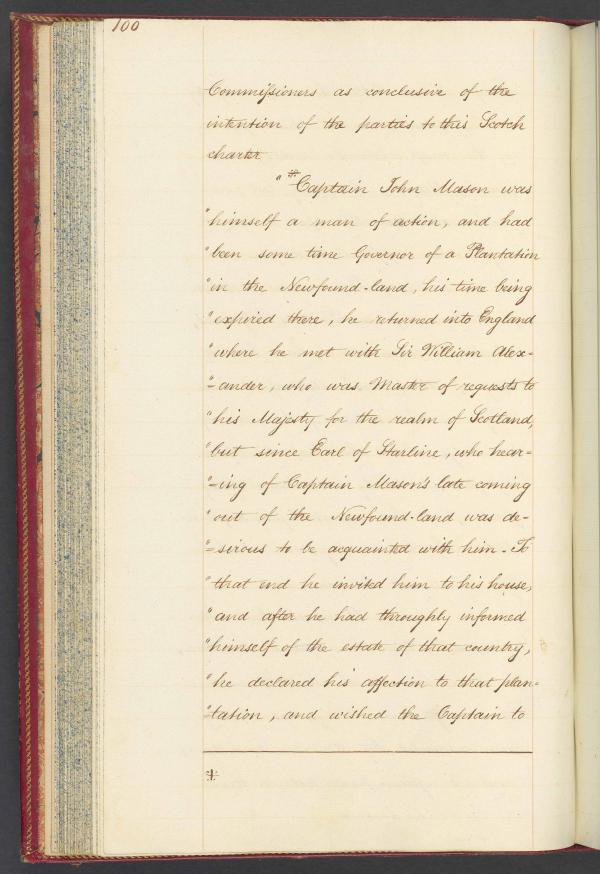 100
Commissioners as conclusive of the
intention of the parties to this Scotch
charter
" * Captain John Mason was
" himself a man of action, and had
" been some time Governor of a Plantation
" in the Newfound-land, his time being
" expired there, he returned into England
" where he met with Sir William Alex-
" -ander, who was Master of requests to
" his Majesty for the realm of Scotland,
" but since Earl of Starline, who hear-
" -ing of Captain Mason's late coming
" out of the Newfound-land was de-
" -sirous to be acquainted with him - To
" that end he invited him to his house,
" and after he had throughly informed
" himself of the estate of that country,
" he declared his affection to that plan-
" -tation, and wished the Captain to
*